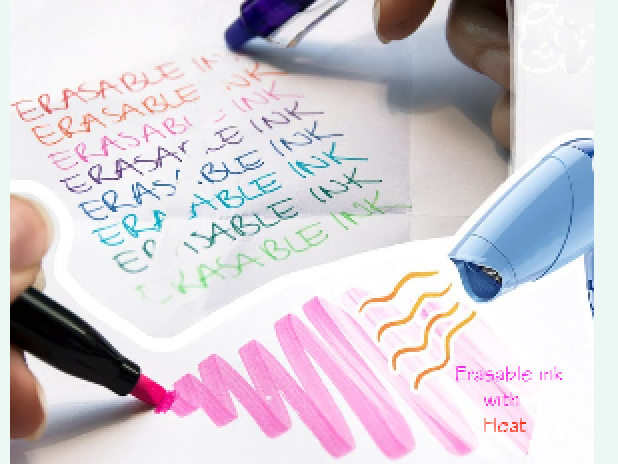 ERASABLE IN
ERASABLE NK
ERASABL INK
ERASA E INK
ERAS BLE INK
ERA ABLE INK
ER SABLE INK
ERASABLE INK
Erasable ink
with
Heat